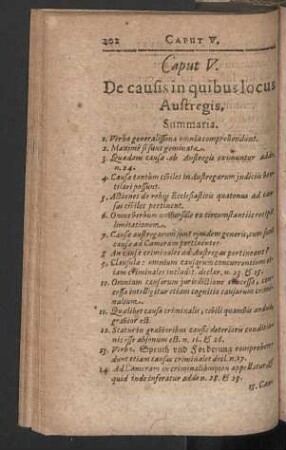 202 CAPUT V.
Caput V.
De causis in quibus locus
Austregis.
Summaria.
1. Verba generalissima omnia comprehendunt.
2. Maximè si sunt geminata.
3. Quædam causæ ab Austregis eximuntur adde
n. 24.
4. Causæ tantùm civiles in Austregarum judiciis ven-
tilari possunt.
5. Actiones de rebus Ecclesiasticis quatenus ad cau-
sas civiles pertineant.
6. Omne verbum universale ex circumstantiis recipit
limitationem.
7. Causæ austregarum sunt ejusdem generis, cum sunt
causæ ad Cameram pertinentes.
8. An causæ criminales ad Austregas pertineant?
9. Clausula: omnium causarum concurrentium et-
iam criminales includit. declar. n. 23. & 25.
10. Omnium causarum jurisdictione concessa, con-
cessa intelligitur etiam cognitio causarum crimi-
nalium.
11. Qualibet causa criminalis, civili quantumvis
gravior est.
12. Statutis gravioribus causis deteriorem conditio-
nis esse absonum est. n. 16. & 26.
13. Verba, Spruch und Forderung comprehen-
dunt etiam causas criminales decl. n. 27.
14. Ad Cameram in criminalibus non appellatur &
quid inde inferatur adde n. 28. & 29.
15. Cau-